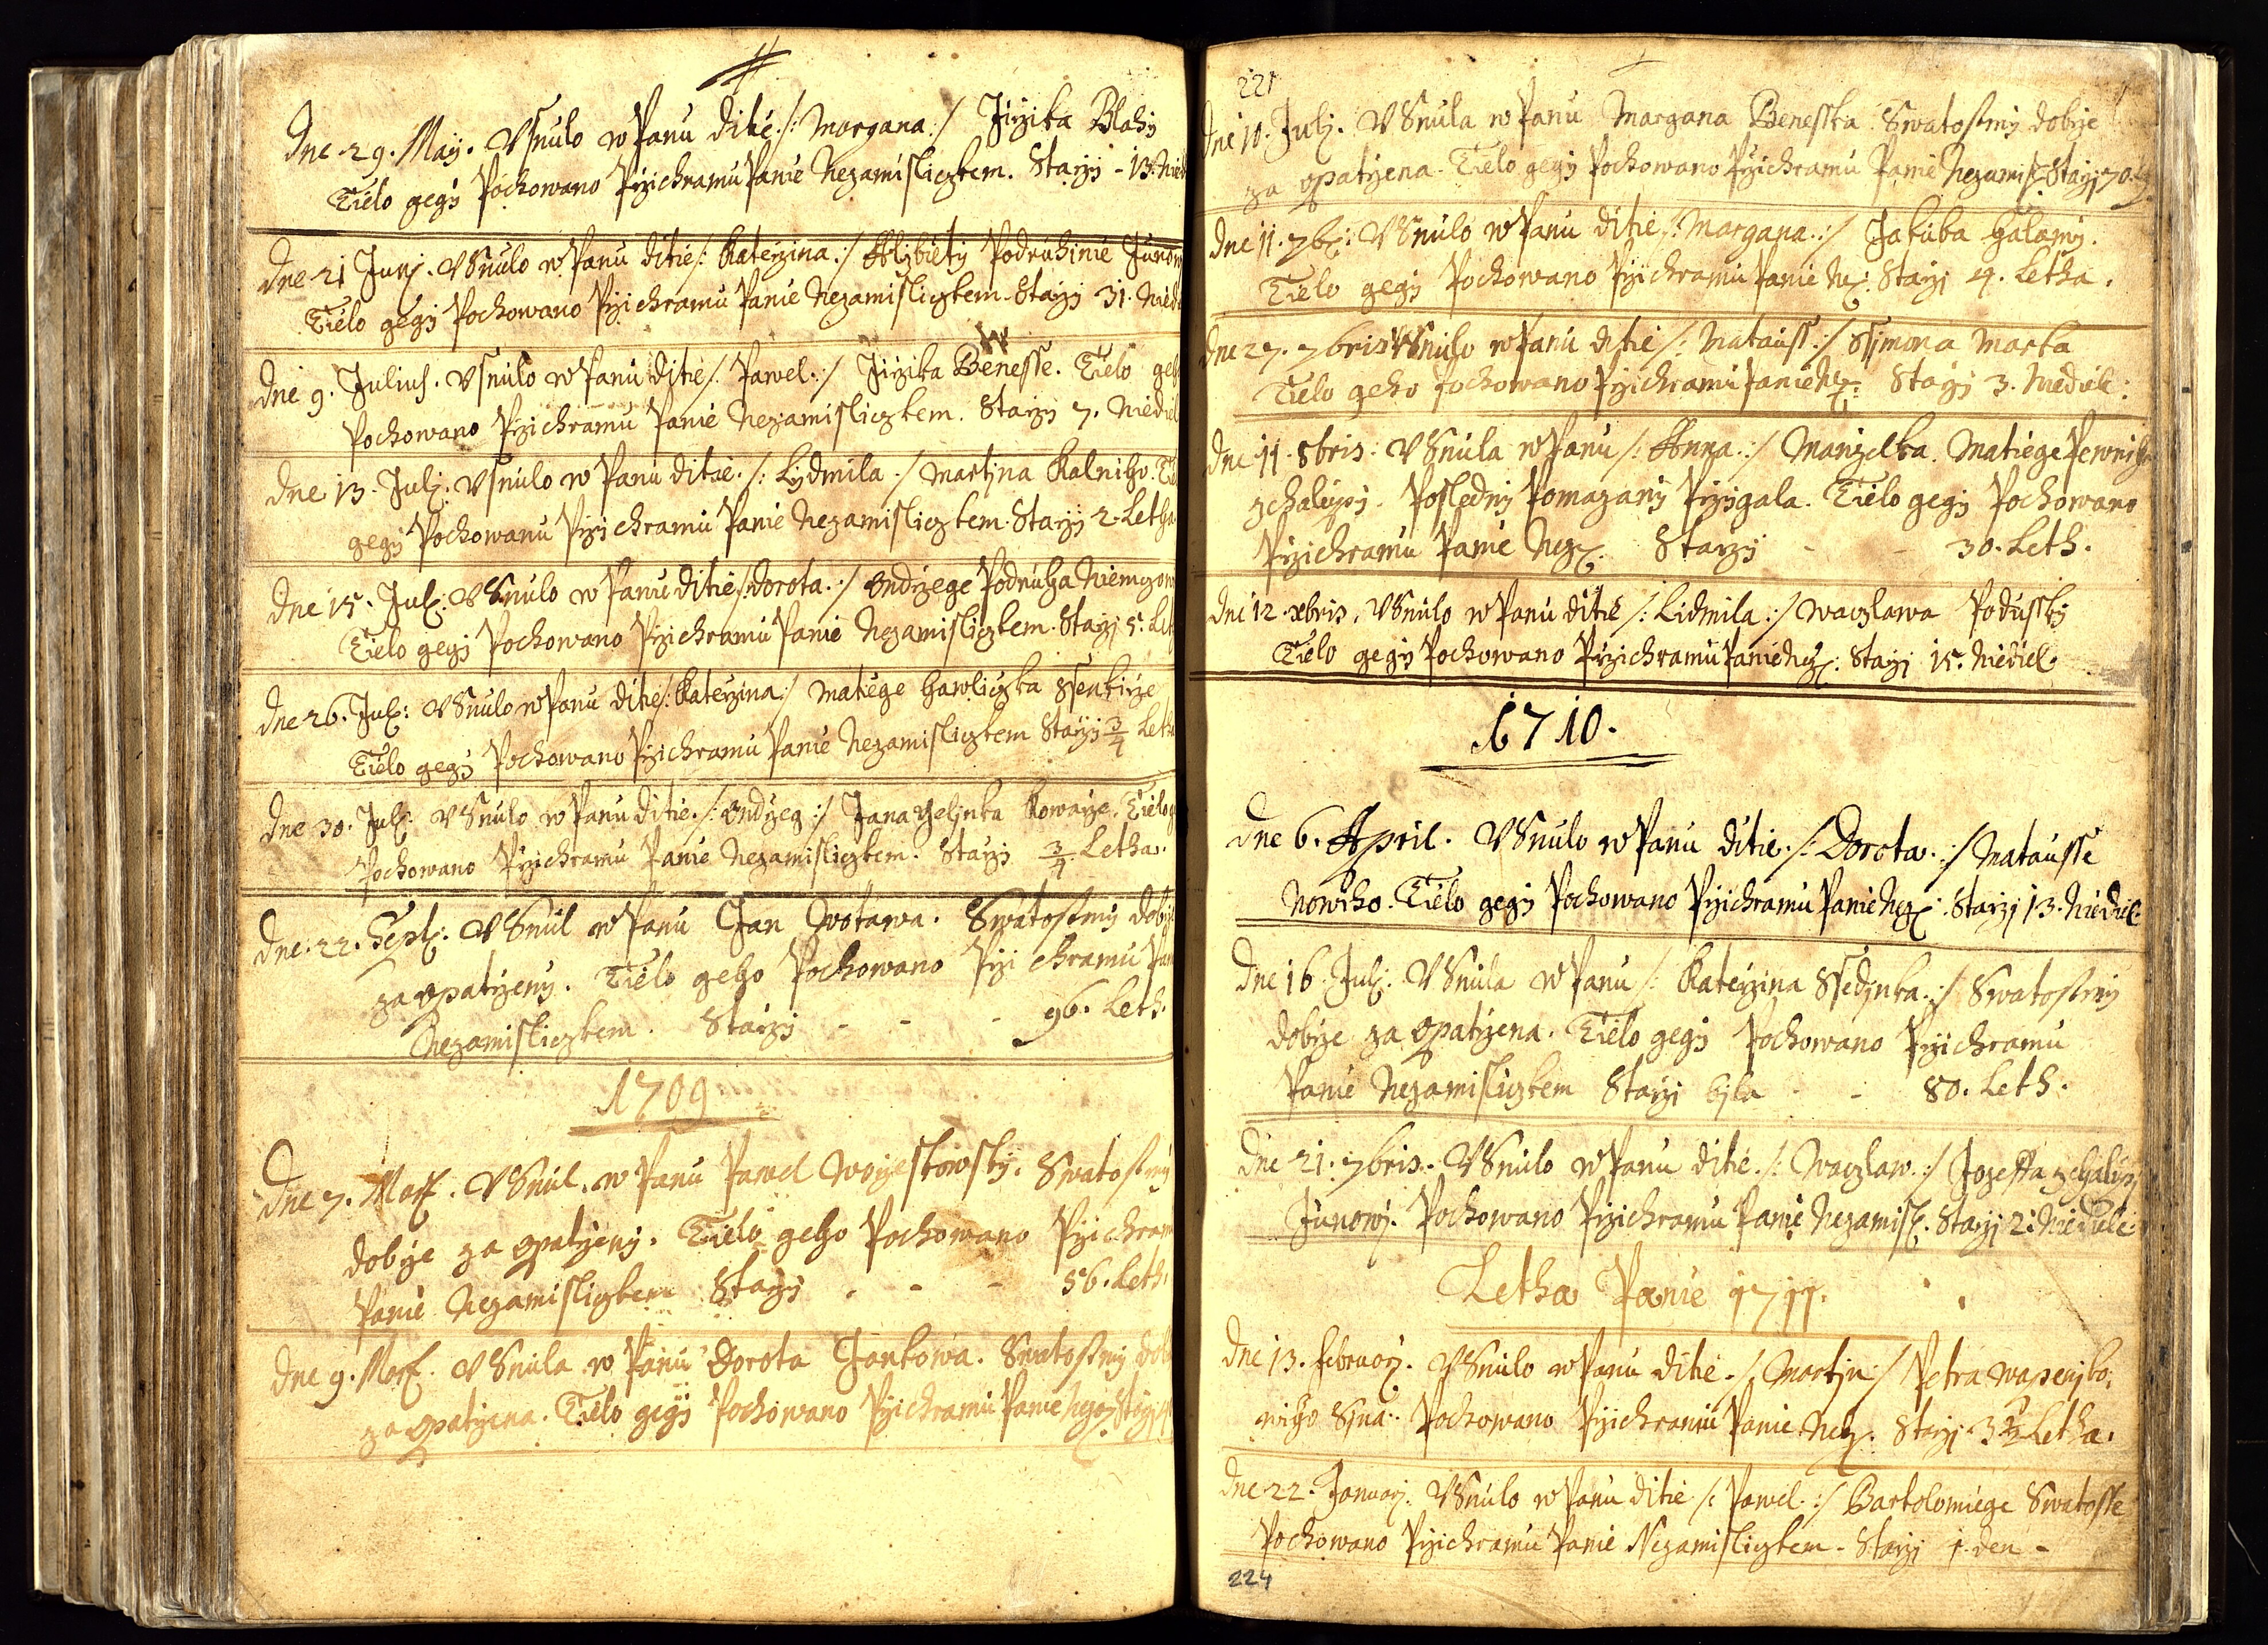 Dne 29. Maӱ. Usnulo w Panu ditie /: Margana :/ Jiržika Blahӱ
Tielo gegӱ Pochowano Pržichramu Panie Nezamisliczkem. Staržӱ - 13. Nied
Dne 21 Junj. Usnulo w Panu ditie /: Kateržina :/ Alzbietӱ Podruhinie
Tielo gegӱ Pochowano Pržichramu Panie Nezamisliczkem. Staržӱ 31. Nied
Dne 9. Julius. Usnulo w Panu ditie /: Pawel :/ Jiržika Benesse. Tielo geh
Pochowano Pržichramu Panie Nezamisliczkem. Staržӱ 7. Niediel
Dne 13. Julj. Usnulo w Panu ditie /: Lydmila :/ Martjna Kalniho.
gegӱ Pochowanu Pržichramu Panie Nezamisliczkem. Staržӱ 2. Letha
Dne 15. Jul: Usnulo w Panu ditie /: Dorota :/ Ondržege Podruha
Tielo gegӱ Pochowano Pržichramu Panie Nezamisliczkem. Staržj 5. Let
Dne 26. Jul: Usnulo w Panu ditie /: Kateržina :/ Matiege Hawliczka
Tielo gegӱ Pochowano Pržichramu Panie Nezamisliczkem Staržӱ 3/4 Leth
Dne 30. Jul: Usnulo w Panu ditie /: Ondržeg :/ Jana Geljnka Kowarže. Tielo
Pochowano Pržichramu Panie Nezamisliczkem. Staržӱ 3/4 Letha.
Dne 22. Sept: Usnul w Panu Jan Wotawa. Swatostmӱ dobrže
zaopatrženӱ. Tielo geho Pochowano Prži chramu Pan
Nezamisliczkem. Staržӱ - - - 96. Leth.
1709
Dne 7. Mart. Usnul w Panu Pawel. Swatostmӱ
dobrže zaopatrženӱ. Tielo geho Pochowano Pržichram
Panie Nezamisliczkem Staržӱ - - - 56. Leth.
Dne 9. Mart. Usnula w Panu Dorota Jankowa. Swatostmӱ dob
zaopatržena. Tielo gegӱ Pochowano Pržichramu Panie
221
Dne 10. Julj. Usnula w Panu Margana Benesska Swatostmӱ dobrže
zaopatržena. Tielo gegӱ Pochowano Pržichramu Panie Nezamisl. Staržj 70.
Dne 11. 7b: Usnulo w Panu ditie /: Margana :/ Jakuba
Tielo gegӱ Pochowano Pržichramu Panie Nez. Staržj 4. Letha.
Dne 27. 7bris Usnulo w Panu ditie /: Matauss :/ Ssimona Marka
Tielo geho Pochowano Pržichramu Panie Nez. Staržj 3. Niediele:
Dne 11. 8bris: Usnula w Panu /: Anna :/ Manželka Matiege
z chalupӱ. Poslednӱ Pomazanӱ Pržigala. Tielo gegӱ Pochowano
Pržichramu Panie Nez. Staržӱ - - 30. Leth.
Dne 12. xbris. Usnulo w Panu ditie /: Lidmila :/ Waczlawa Podusskӱ
Tielo gegӱ Pochowano Pržichramu Panie Nez. Staržj 15. Niediel.
1710.
Dne 6. April. Usnulo w Panu ditie /: Dorota :/ Matausse
Nowiho. Tielo gegӱ Pochowano Pržichramu Panie Nez. Staržj 13. Niediel.
Dne 16. Julj. Usnula w Panu /: Kateržina Ssedjnka :/ Swatostmӱ
dobrže zaopatržena. Tielo gegӱ Pochowano Pržichramu
Panie Nezamisliczkem Staržj bjla - - 80. Leth.
Dne 21. 7bris. Usnulo w Panu ditie /: Waczlaw :/ Jozeffa z chalup
Pochowano Pržichramu Panie Nezamisl. Staržj 2. Niediele.
Letha Panie 1711.
Dne 13. Februarj. Usnulo w Panu ditie /: Martjn :/ Petra
Sӱna. Pochowano Pržichramu Panie Nez. Staržj 3 1/2 Letha.
Dne 22. Januarj. Usnulo w Panu ditie /: Pawel :/ Bartolomiege Swatosse
Pochowano Pržichramu Panie Nezamisliczkem. Staržj 1. den -
224